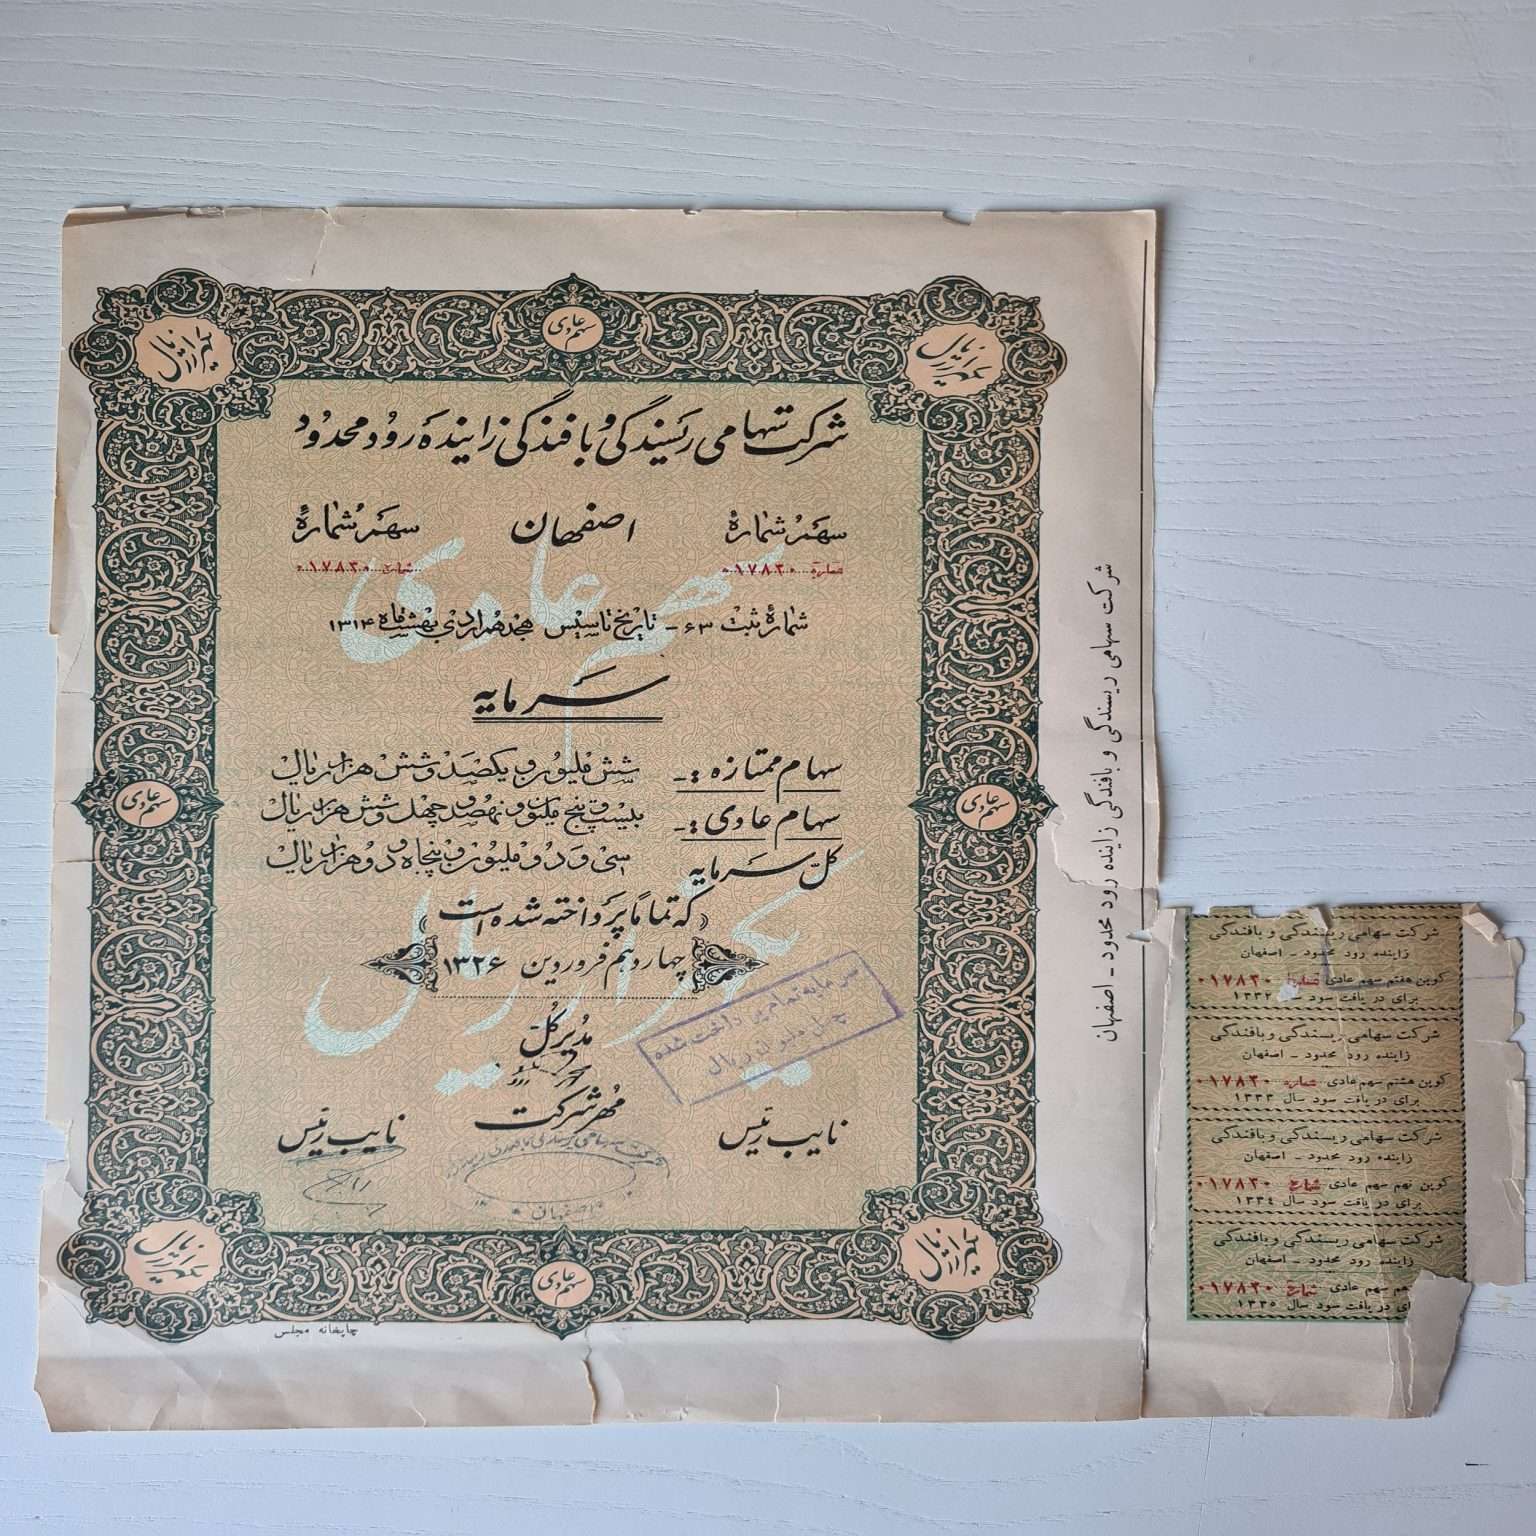 یکهزار ریال
سهم عادی
یکهزار ریال
شرکت سهامی ریسندگی و بافندگی زاینده رود محدود
سهم شماره
اصفهان
سهم شماره
شماره ۰۱۷۸۲۰
شماره ۰۱۷۸۲۰
شمارهٔ ثبت ۶۳ - تاریخ تاسیس هجدهم اردی بهشت ماه ۱۳۱۴
سهم عادی
سرمایه
سهام ممتازه :- شش ملیون و یکصد و شش هزار ریال
سهام عادی :- بیست و پنج ملیون و نهصد و چهل و شش هزار ریال
کلّ سرمایه سی و دو ملیون و پنجاه و دو هزار ریال
سهم عادی
سهم عادی
« که تماماً پرداخته شده است »
چهاردهم فروردین ۱۳۲۶
یکهزار ریال
سرمایه تماماً پرداخت شده
چهل ملیون ریال
مدیر کلّ
مُهر شرکت
نایب رئیس
نایب رئیس
اصفهان
یکهزار ریال
سهم عادی
یکهزار ریال
چاپخانه مجلس
شرکت سهامی ریسندگی و بافندگی زاینده رود محدود - اصفهان
شرکت سهامی ریسندگی و بافندگی
زاینده رود محدود - اصفهان
کوپن هفتم سهم عادی شماره ۰۱۷۸۲۰
برای دریافت سود سال ۱۳۳۲
شرکت سهامی ریسندگی و بافندگی
زاینده رود محدود - اصفهان
کوپن هشتم سهم عادی شماره ۰۱۷۸۲۰
برای دریافت سود سال ۱۳۳۳
شرکت سهامی ریسندگی و بافندگی
زاینده رود محدود - اصفهان
کوپن نهم سهم عادی شماره ۰۱۷۸۲۰
برای دریافت سود سال ۱۳۳۴
شرکت سهامی ریسندگی و بافندگی
زاینده رود محدود - اصفهان
سهم عادی شماره ۰۱۷۸۲۰
برای دریافت سود سال ۱۳۳۵